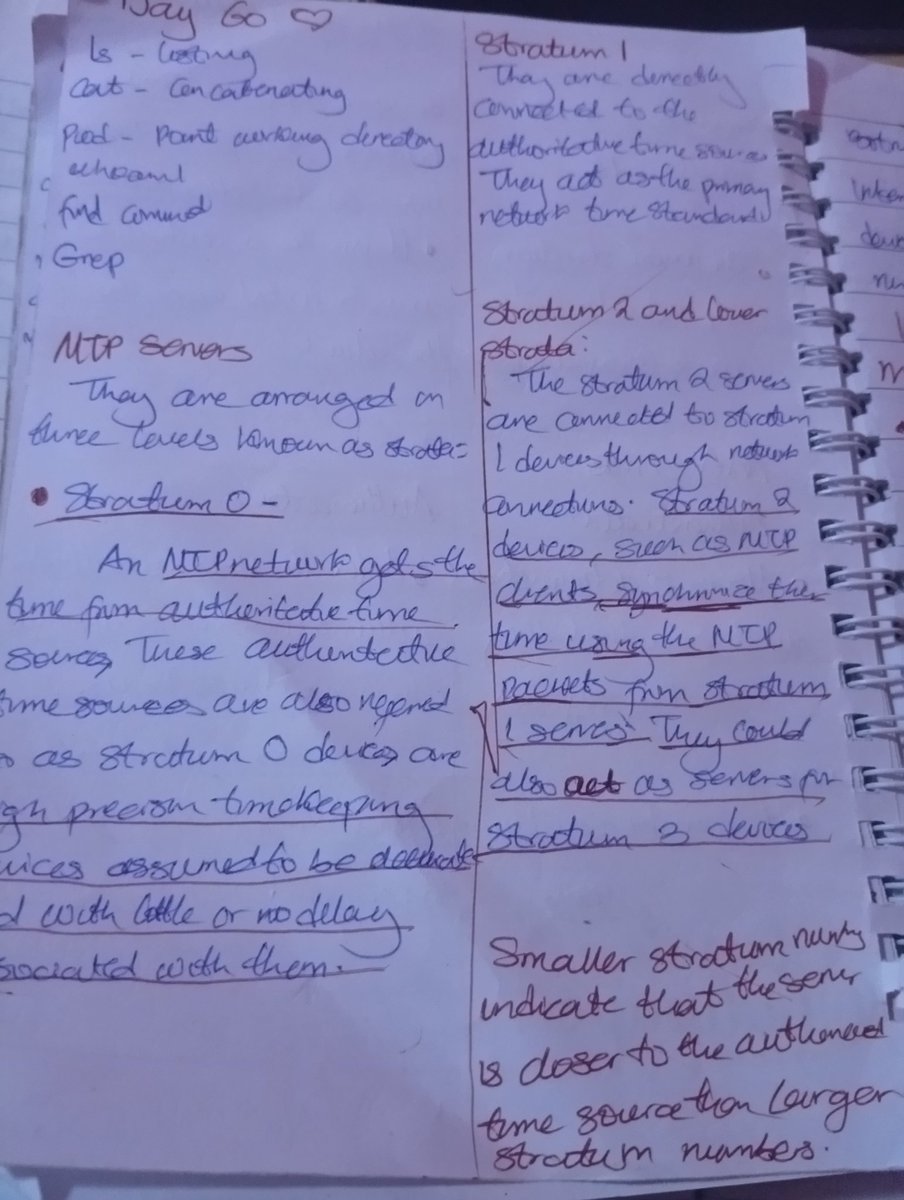 Day Go ♡
ls - listing
Cat - Concatenating
Pwd - Point working directory
whoami
find command
Grep
NTP Servers
They are arranged in
three levels known as strata:
• Stratum 0 -
An NTP network gets the
time from authoritative time
sources, These authoritative
time sources are also refered
as stratum 0 devices are
gh precision timekeeping
vices assumed to be accurate
d with little or no delay
sociated with them.
Stratum 1
They are directly
connected to the
authoritative time sources
They act as the primary
network time standard
Stratum 2 and lower
strata:
The stratum 2 servers
are connected to stratum
1 devices through network
connections. Stratum 2
devices, such as NTP
clients, synchronize their
time using the NTP
packets from stratum
1 servers. They could
also act as servers for
stratum 3 devices
Smaller stratum
indicate that the server
is closer to the
time source than larger
stratum numbers.